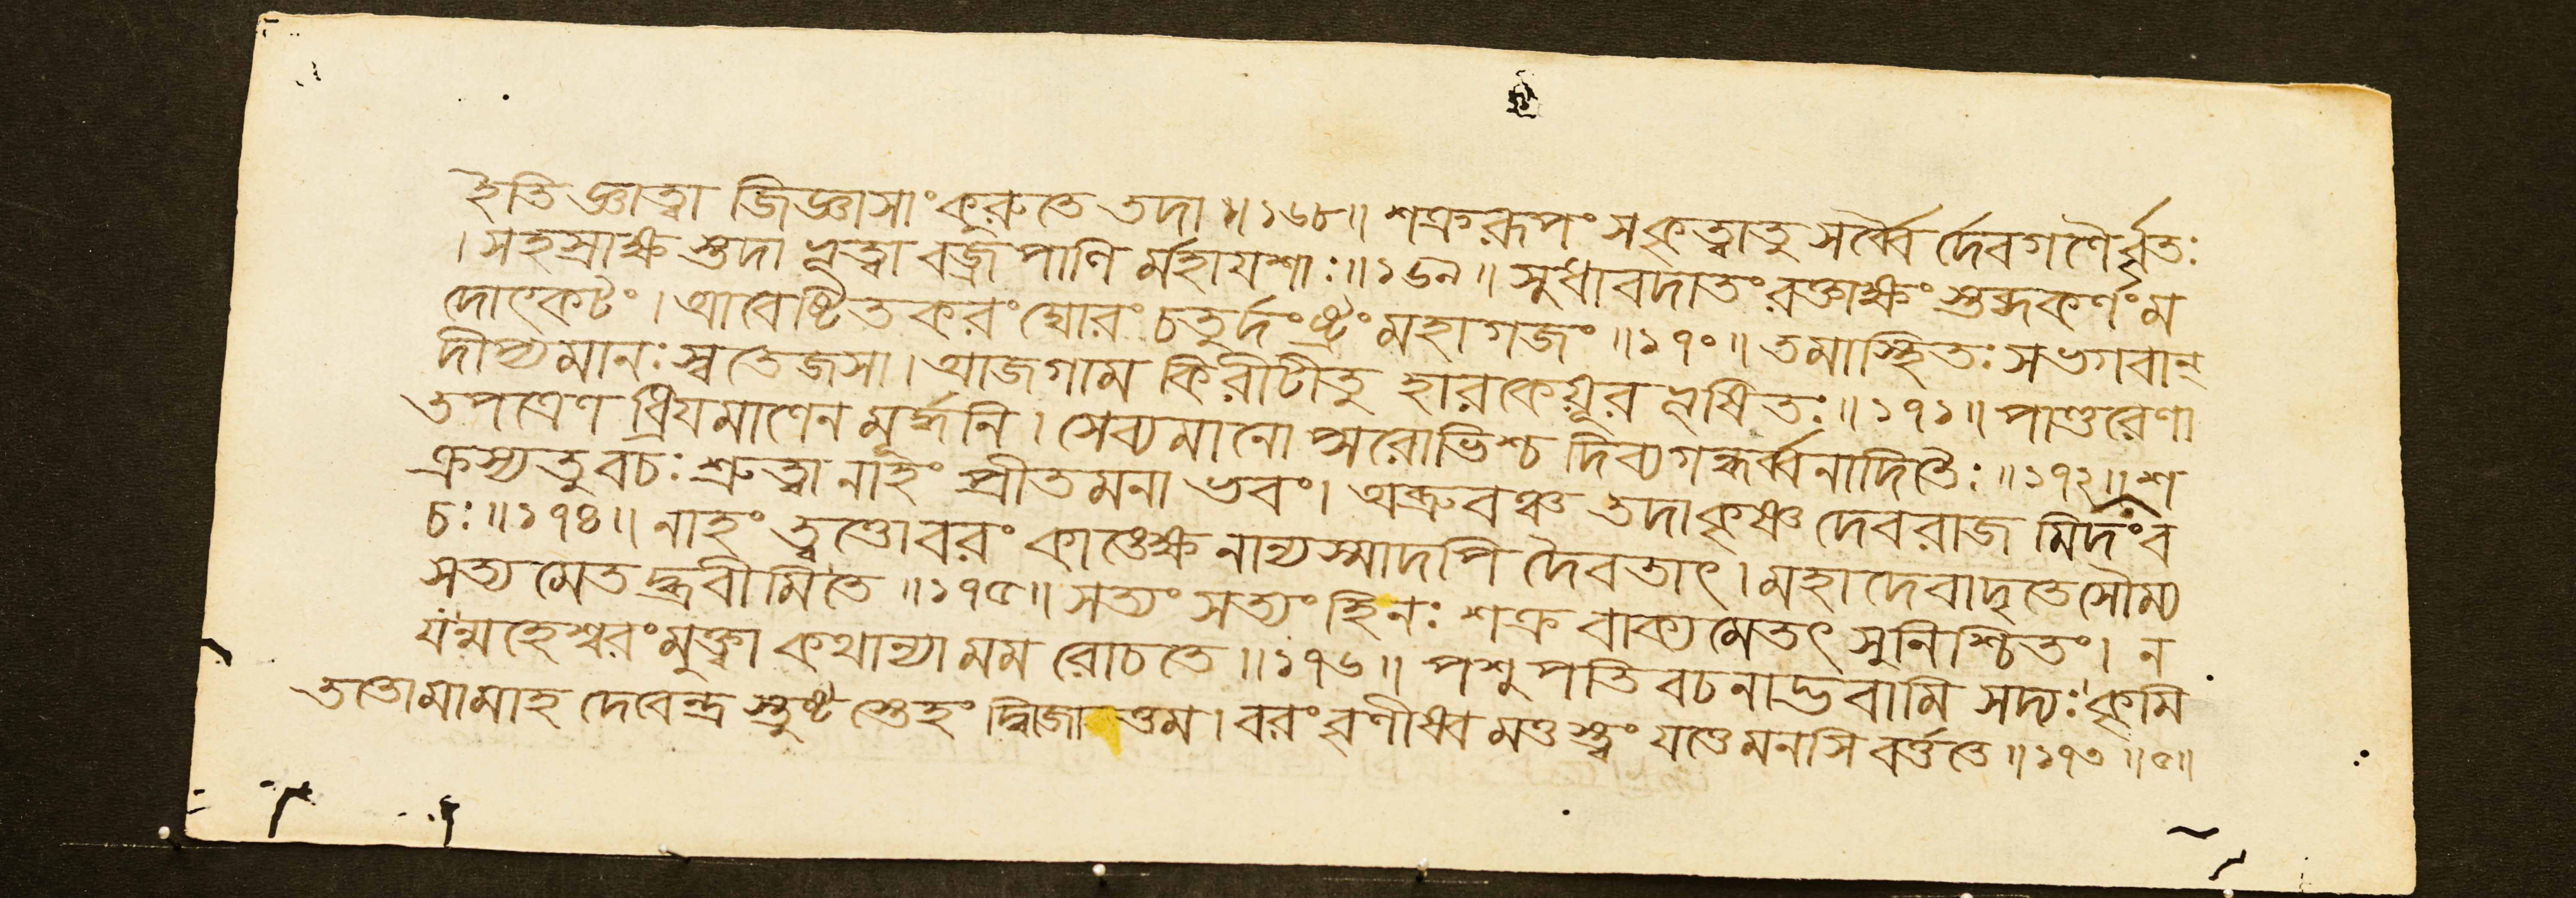 ইতি জ্ঞাত্বা জিজ্ঞাসাং কুরুতে তদা ॥১৬৮॥ শক্ররূপং সকৃত্বাতু সর্ব্বৈ র্দেবগণৈর্ব্বৃতঃ
। সহস্রাক্ষ স্তদা ভূত্বা বজ্রপাণি র্মহাযশাঃ॥১৬৯॥ সুধাবদাতং রক্তাক্ষং স্তব্ধকর্ণং ম
দোৎকটং। আবেষ্টিতকরং ঘোরং চতুর্দংষ্ট্রং মহাগজং ॥১৭০॥ তমাস্থিতঃ সভগবান্
দীপ্যমানঃ স্বতেজসা। আজগাম কিরীটীতু হারকেয়ূর ভূষিতঃ॥১৭১॥ পাণ্ডুরেণা
তপত্রেণ ধ্রিয়মাণেন মূর্দ্ধনি। সেব্যমানো প্সরোভিশ্চ দিব্যগন্ধর্ব্বনাদিতৈঃ॥১৭২॥ শ
ক্রস্য তু বচঃ শ্রুত্বা নাহং প্রীতমনা ভবং। অব্রুবঞ্চ তদাকৃষ্ণ দেবরাজ মিদং ব
চঃ॥১৭৪॥ নাহং ত্বত্তোবরং কাঙেক্ষ নান্যস্মাদপি দৈবতাৎ। মহাদেবাদৃতে সৌম্য
সত্য মেত দ্ব্রবীমিতে ॥১৭৫॥ সত্যং সত্যং হিনঃ শক্র বাক্যমেতৎ সুনিশ্চিতং। ন
যন্মহেশ্বরং মুক্ত্বা কথান্যা মম রোচতে ॥১৭৬॥ পশুপতি বচনাদ্ভবামি সদ্যঃ কৃমি
ততোমামাহ দেবেন্দ্র স্তুষ্ট স্তেহং দ্বিজোত্তম। বরং বৃণীষ্ব মত্ত স্ত্বং যত্তে মনসি বর্ত্ততে॥১৭৩॥৫॥